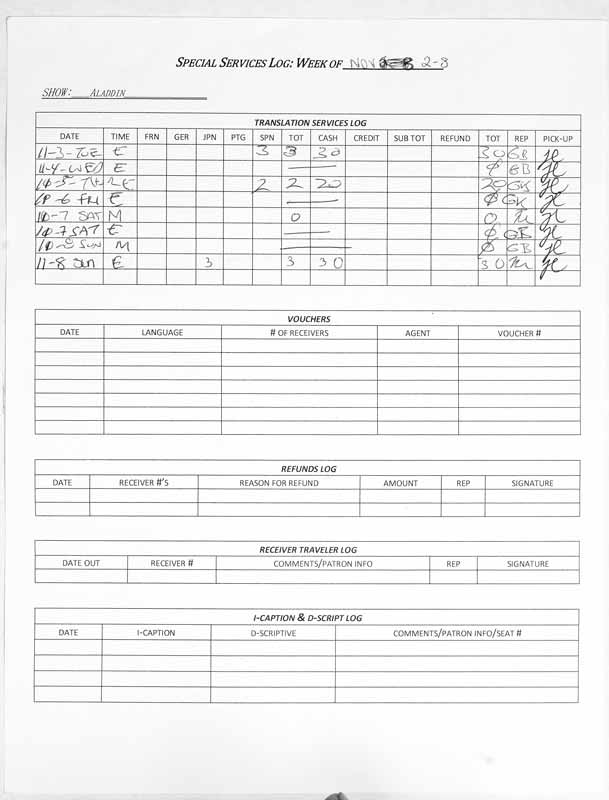 SPECIAL SERVICES LOG: WEEK OF NOV 2-8
SHOW: ALADDIN
TRANSLATION SERVICES LOG
DATE TIME FRN GER JPN PTG SPN TOT CASH CREDIT SUB TOT REFUND TOT REP PICK-UP
11-3-TUE E 3 3 30 30 GB
11-4-WED E ∅ GB
E 2 2 20 20 GK
6 FRI E ∅ GK
10-7 SAT M 0 0
10-7 SAT E ∅ GB
SUN M ∅ GB
11-8 SUN E 3 3 30 30
VOUCHERS
DATE LANGUAGE # OF RECEIVERS AGENT VOUCHER #
REFUNDS LOG
DATE RECEIVER #'S REASON FOR REFUND AMOUNT REP SIGNATURE
RECEIVER TRAVELER LOG
DATE OUT RECEIVER # COMMENTS/PATRON INFO REP SIGNATURE
I-CAPTION & D-SCRIPT LOG
DATE I-CAPTION D-SCRIPTIVE COMMENTS/PATRON INFO/SEAT #